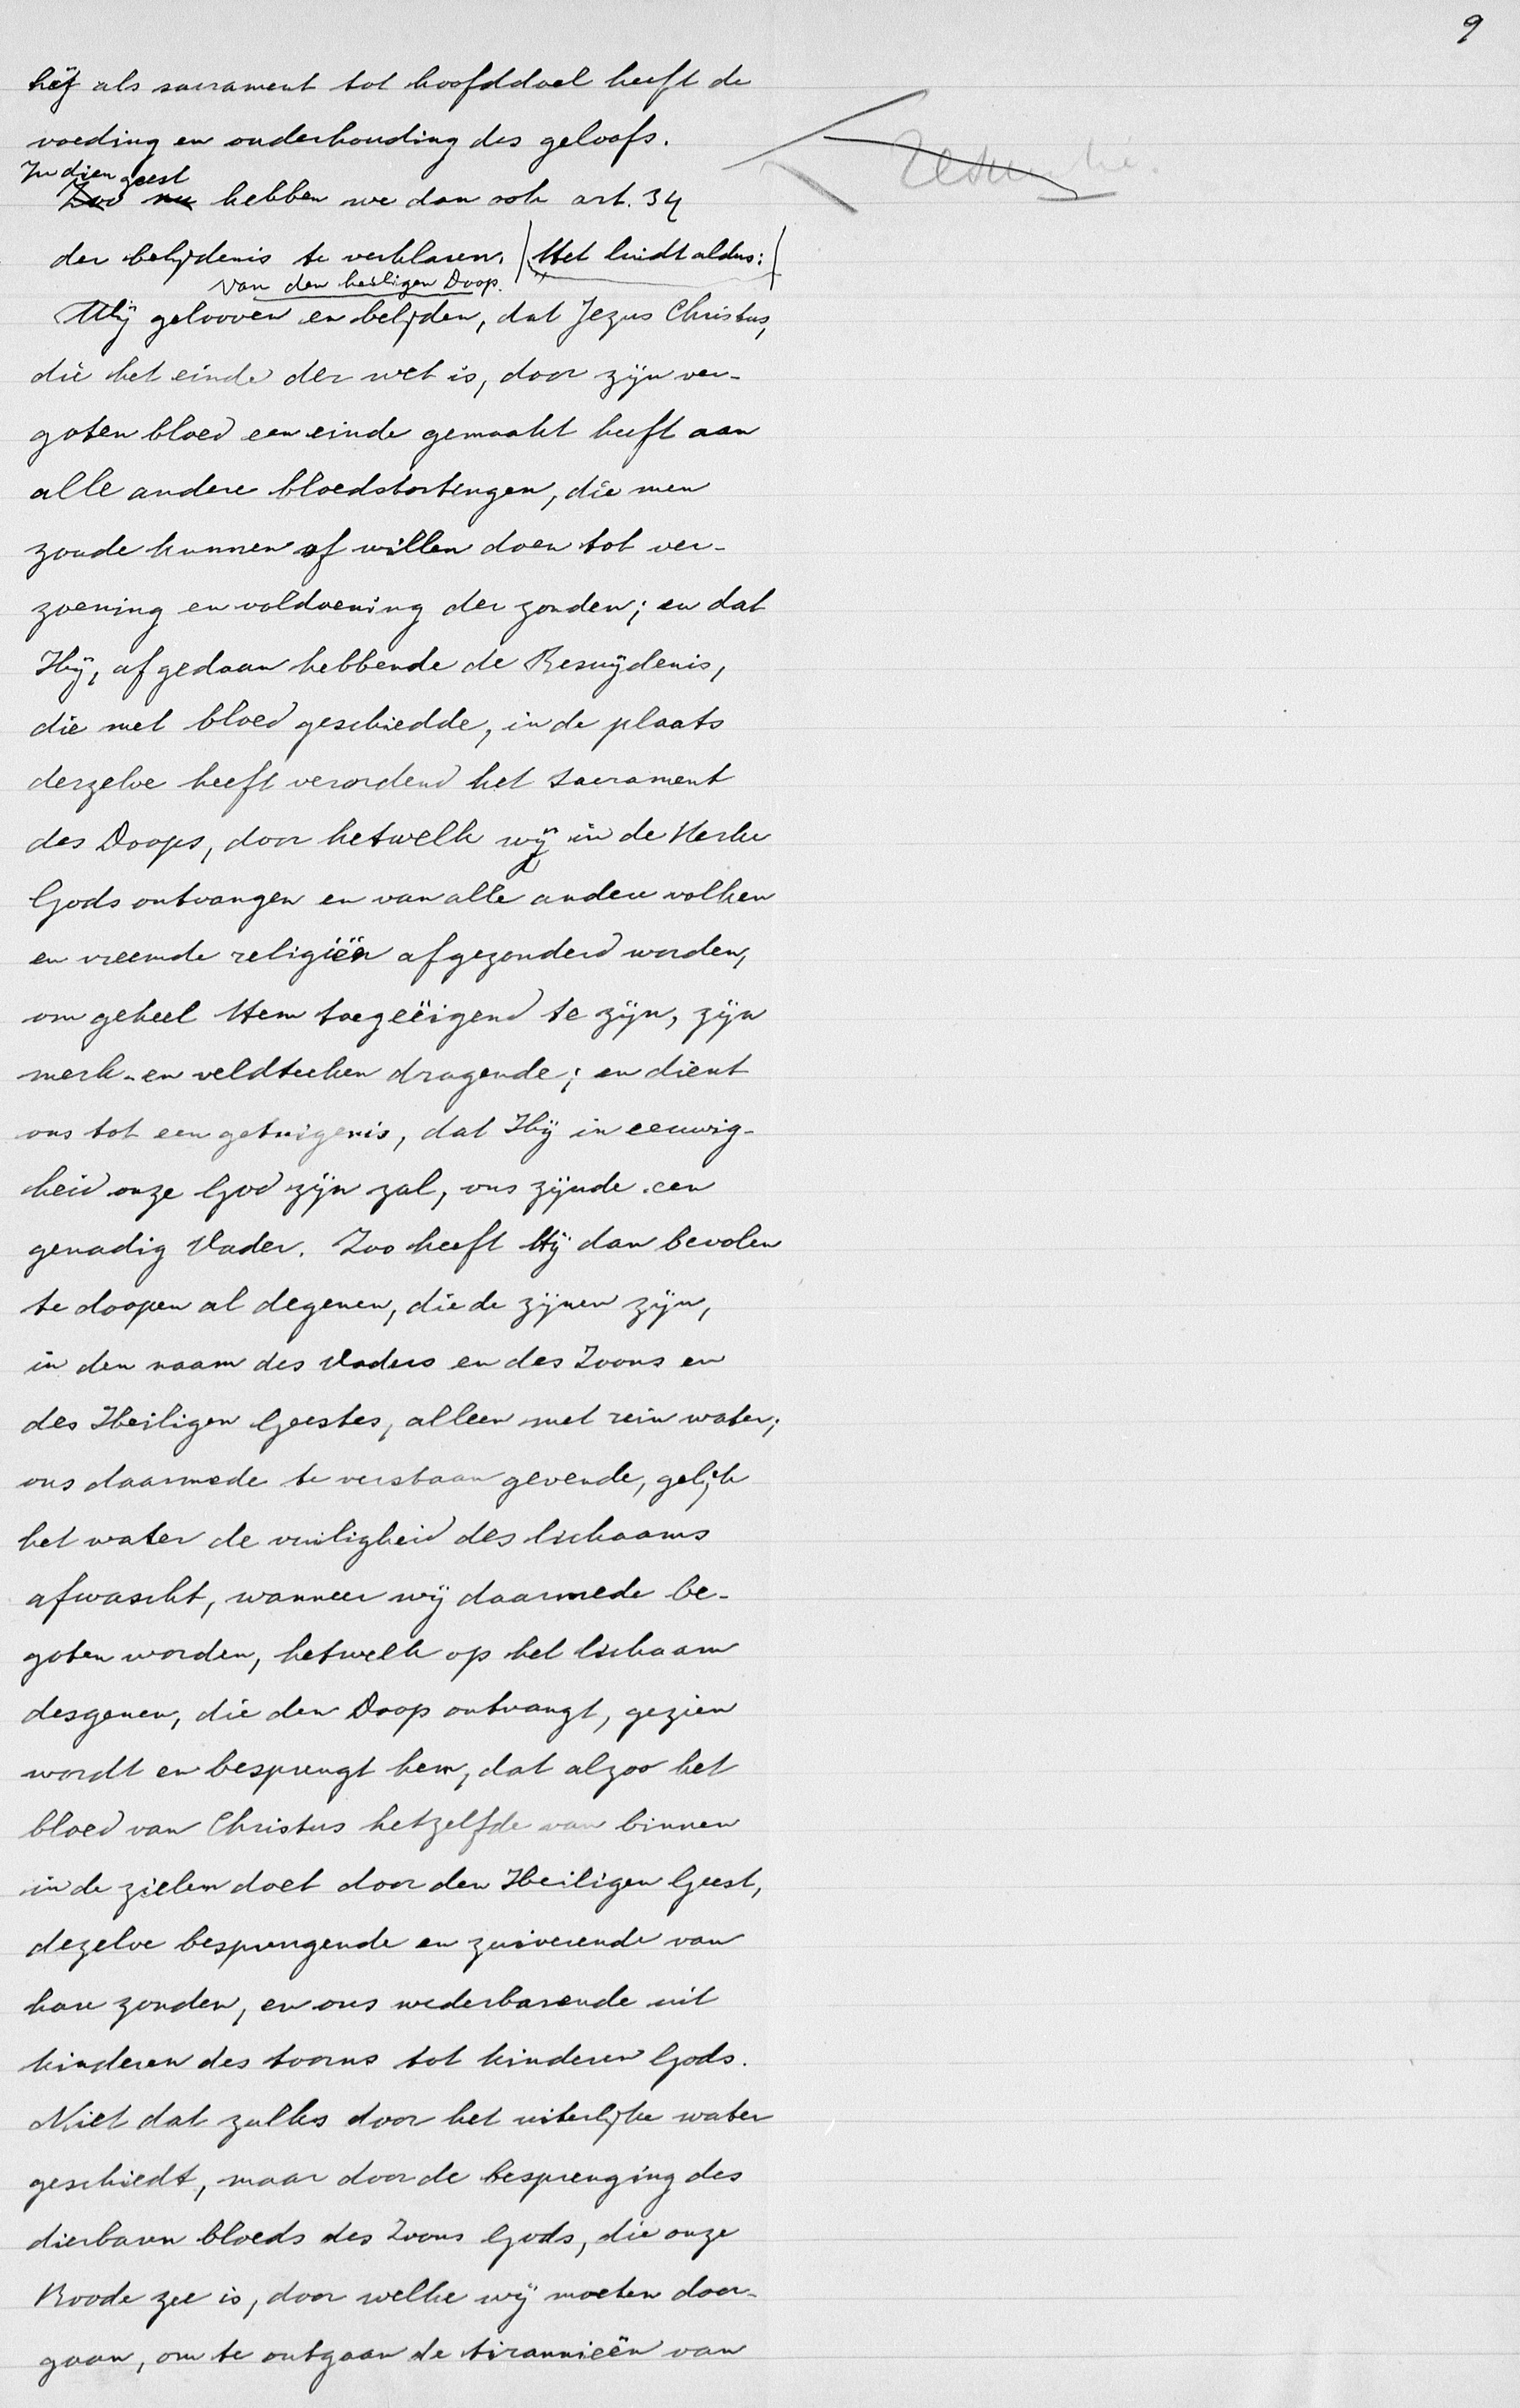 9
hij als sacrament tot hoofddoel heeft de
voeding en onderhouding des geloofs.
In dien geest
Zoo nu hebben we dan ook art. 34
der belijdenis te verklaren. Het luidt aldus:
Van den heiligen Doop.
Wij gelooven en belijden, dat Jezus Christus,
die het einde der wet is, door zijn ver-
goten bloed een einde gemaakt heeft aan
alle andere bloedstortingen, die men
zoude kunnen of willen doen tot ver-
zoening en voldoening der zonden; en dat
Hij, afgedaan hebbende de Besnijdenis,
die met bloed geschiedde, in de plaats
derzelve heeft verordend het sacrament
des Doops, door hetwelk wij in de Kerke
Gods ontvangen en van alle andere volken
en vreemde religiën afgezonderd worden,
om geheel Hem toegeëigend te zijn, zijn
merk- en veldteeken dragende; en dient
ons tot een getuigenis, dat Hij in eeuwig-
heid onze God zijn zal, ons zijnde een
genadig Vader. Zoo heeft Hij dan bevolen
te doopen al degenen, die de zijnen zijn,
in den naam des Vaders en des Zoons en
des Heiligen Geestes, alleen met rein water;
ons daarmede te verstaan gevende, gelijk
het water de vuiligheid des lichaams
afwascht, wanneer wij daarmede be-
goten worden, hetwelk op het lichaam
desgenen, die den Doop ontvangt, gezien
wordt en besprengt hem, dat alzoo het
bloed van Christus hetzelfde van binnen
in de zielen doet door den Heiligen Geest,
dezelve besprengende en zuiverende van
hare zonden, en ons wederbarende uit
kinderen des toorns tot kinderen Gods.
Niet dat zulks door het uiterlijke water
geschiedt, maar door de besprenging des
dierbaren bloeds des Zoons Gods, die onze
Roode zee is, door welke wij moeten door-
gaan, om te ontgaan de tirannieën van